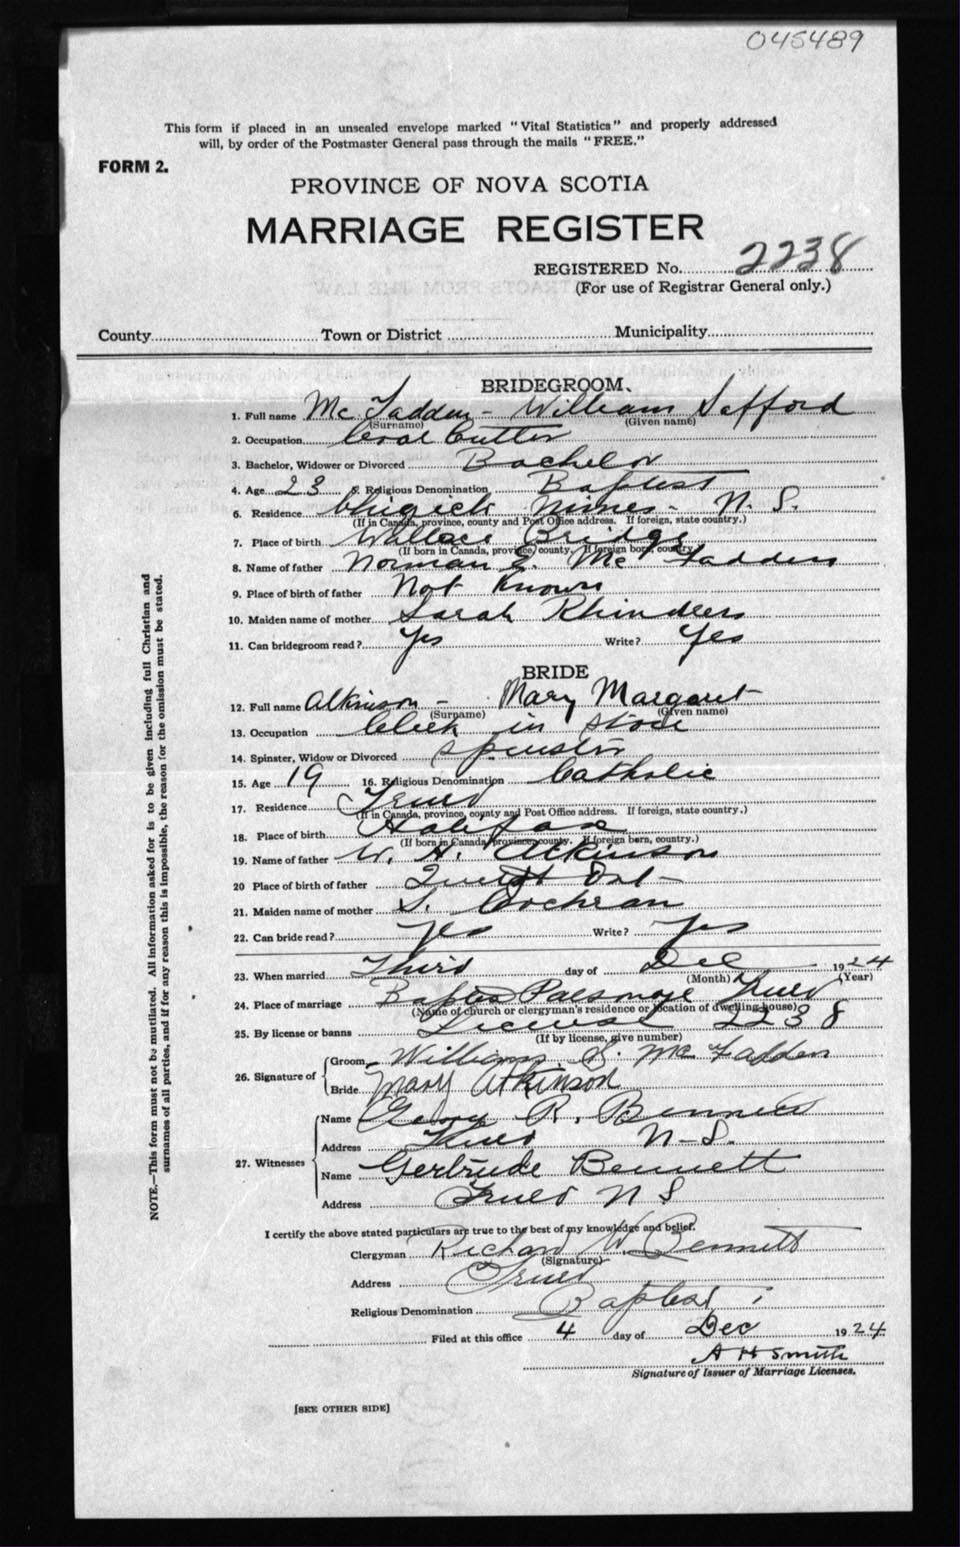 045489
This form if placed in an unsealed envelope marked "Vital Statistics" and properly addressed
will, by order of the Postmaster General pass through the mails "FREE."
FORM 2.
PROVINCE OF NOVA SCOTIA
MARRIAGE REGISTER
REGISTERED No. 2238
(For use of Registrar General only.)
County Town or District Municipality
BRIDEGROOM.
1. Full name McFadden - William Safford
(Surname) (Given name)
2. Occupation Coal Cutter
3. Bachelor, Widower or Divorced Bachelor
4. Age 23 5. Religious Denomination Baptist
6. Residence Mines - N.S.
(If in Canada, province, county and Post Office address. If foreign, state country.)
7. Place of birth Wallace Bridge
(If born in Canada, province, county. If foreign born, country.)
8. Name of father Norman E. McFadden
9. Place of birth of father Not Known
10. Maiden name of mother Sarah
11. Can bridegroom read? Yes Write? Yes
BRIDE
12. Full name Atkinson - Mary Margaret
(Surname) (Given name)
13. Occupation Clerk in store
14. Spinster, Widow or Divorced Spinster
15. Age 19 16. Religious Denomination Catholic
17. Residence Truro
(If in Canada, province, county and Post Office address. If foreign, state country.)
18. Place of birth Halifax
(If born in Canada province, county. If foreign born, country.)
19. Name of father W. H. Atkinson
20 Place of birth of father Ont-
21. Maiden name of mother S. Cochran
22. Can bride read? Yes Write? Yes
23. When married Third day of Dec 1924
(Month) (Year)
24. Place of marriage Baptist Parsonage Truro
(Name of church or clergyman's residence or location of dwelling-house)
25. By license or banns License 2238
(If by license, give number)
26. Signature of Groom William S. McFadden
Bride Mary Atkinson
27. Witnesses Name R. Bennett
Address Truro N-S.
Name Gertrude Bennett
Address Truro N S
I certify the above stated particulars are true to the best of my knowledge and belief.
Clergyman Richard W. Bennett
(Signature)
Address Truro
Religious Denomination Baptist
Filed at this office 4 day of Dec 1924
A H Smith
Signature of Issuer of Marriage Licenses.
[SEE OTHER SIDE]
NOTE.—This form must not be mutilated. All information asked for is to be given including full Christian and
surnames of all parties, and if for any reason this is impossible, the reason for the omission must be stated.